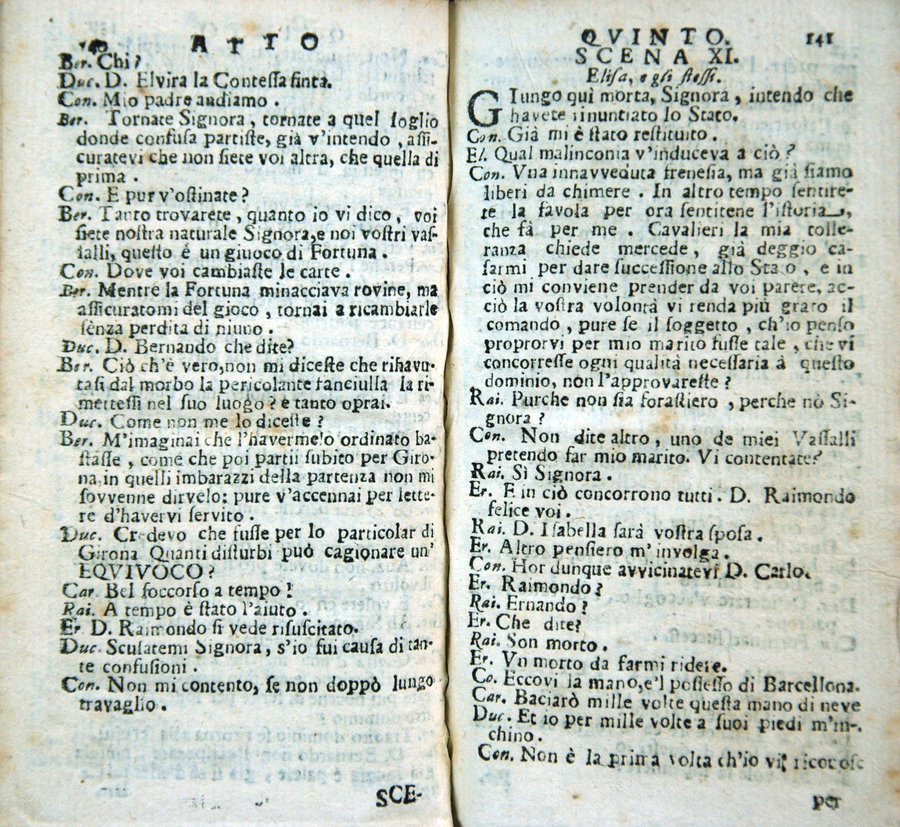 140 ATTO
Ber. Chi?
Duc. D. Elvira la Contessa finta.
Con. Mio padre andiamo.
Ber. Tornate Signora, tornate a quel soglio
donde confusa partiste, già v'intendo, assi-
curatevi che non siete voi altra, che quella di
prima.
Con. E pur v'ostinate?
Ber. Tanto trovarete, quanto io vi dico, voi
siete nostra naturale Signora, e noi vostri vas-
salli, questo è un giuoco di Fortuna.
Con. Dove voi cambiaste le carte.
Ber. Mentre la Fortuna minacciava rovine, ma
assicuratomi del gioco, tornai a ricambiarle
senza perdita di niuno.
Duc. D. Bernando che dite?
Ber. Ciò ch'è vero, non mi diceste che rihavu-
tasi dal morbo la pericolante fanciulla la ri-
mettessi nel suo luogo? e tanto oprai.
Duc. Come non me lo diceste?
Ber. M'imaginai che l'havermelo ordinato ba-
stasse, come che poi partii subito per Giro-
na, in quelli imbarazzi della partenza non mi
sovvenne dirvelo: pure v'accennai per lette-
re d'havervi servito.
Duc. Credevo che fusse per lo particolar di
Girona. Quanti disturbi può cagionare un'
EQVIVOCO?
Car. Bel soccorso a tempo!
Rai. A tempo è stato l'aiuto.
Er. D. Raimondo si vede risuscitato.
Duc. Scusatemi Signora, s'io fui causa di tan-
te confusioni.
Con. Non mi contento, se non doppò lungo
travaglio.
SCE-
QVINTO. 141
SCENA XI.
Elisa, e gli stessi.
GIungo quì morta, Signora, intendo che
havete rinuntiato lo Stato.
Con. Già mi è stato restituito.
El. Qual malinconia v'induceva a ciò?
Con. Vna innavveduta frenesia, ma già siamo
liberi da chimere. In altro tempo sentire-
te la favola per ora sentitene l'istoria,
che fà per me. Cavalieri la mia tolle-
ranza chiede mercede, già deggio ca-
sarmi per dare successione allo Stato, e in
ciò mi conviene prender da voi parere, ac-
ciò la vostra volontà vi renda più grato il
comando, pure se il soggetto, ch'io penso
proprorvi per mio marito fusse tale, che vi
concorresse ogni qualità necessaria à questo
dominio, non l'approvareste?
Rai. Purche non sia forastiero, perche nò Si-
gnora?
Con. Non dite altro, uno de miei Vassalli
pretendo far mio marito. Vi contentate?
Rai. Sì Signora.
Er. E in ciò concorrono tutti. D. Raimondo
felice voi.
Rai. D. Isabella sarà vostra sposa.
Er. Altro pensiero m'involga.
Con. Hor dunque avvicinatevi D. Carlo.
Er. Raimondo?
Rai. Ernando?
Er. Che dite?
Rai. Son morto.
Er. Vn morto da farmi ridere.
Co. Eccovi la mano, e'l possesso di Barcellona.
Car. Baciarò mille volte questa mano di neve
Duc. Et io per mille volte a suoi piedi m'in-
chino.
Con. Non è la prima volta ch'io vi ricono-
per